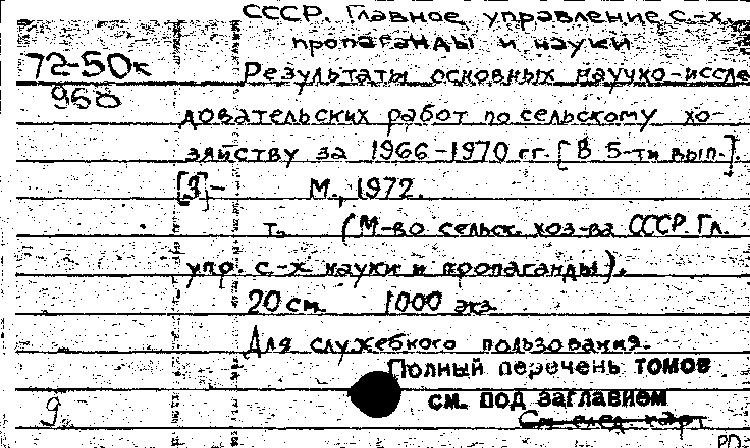 СССР. Главное управление с.-х.
пропаганды и науки
72-50к
968
Результаты основных научно-иссле
довательских работ по сельскому хо-
зяйству за 1966-1970 гг. [В 5-ти вып.].
М., 1972.
т. (М-во сельск. хоз-ва СССР. Гл.
упр. с.-х науки и пропаганды).
20 см. 1000 экз.
Для служебного пользования.
Полный перечень томов
см. под заглавием
См след. карт
9